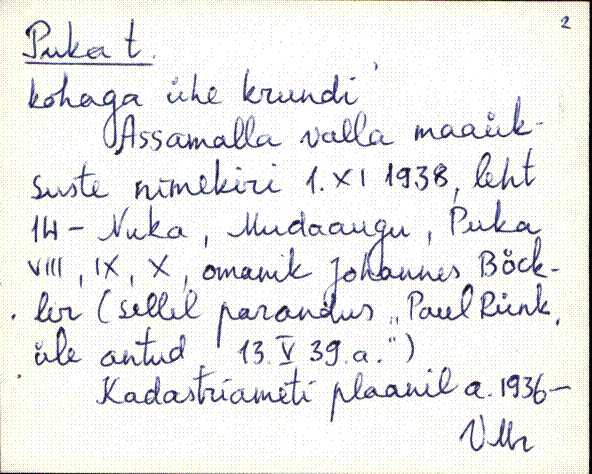 2
Puka t.
kohaga ühe krundi
Assamalla valla maaük-
suste nimekiri 1. XI 1938, leht
14 - Nuka, Mudaaugu, Puka
VIII, IX, X, omanik Johannes Böck-
ler (sellel parandus „Paul Rünk,
üle antud 13. V 39. a.")
Kadastriameti plaanil a. 1936 -